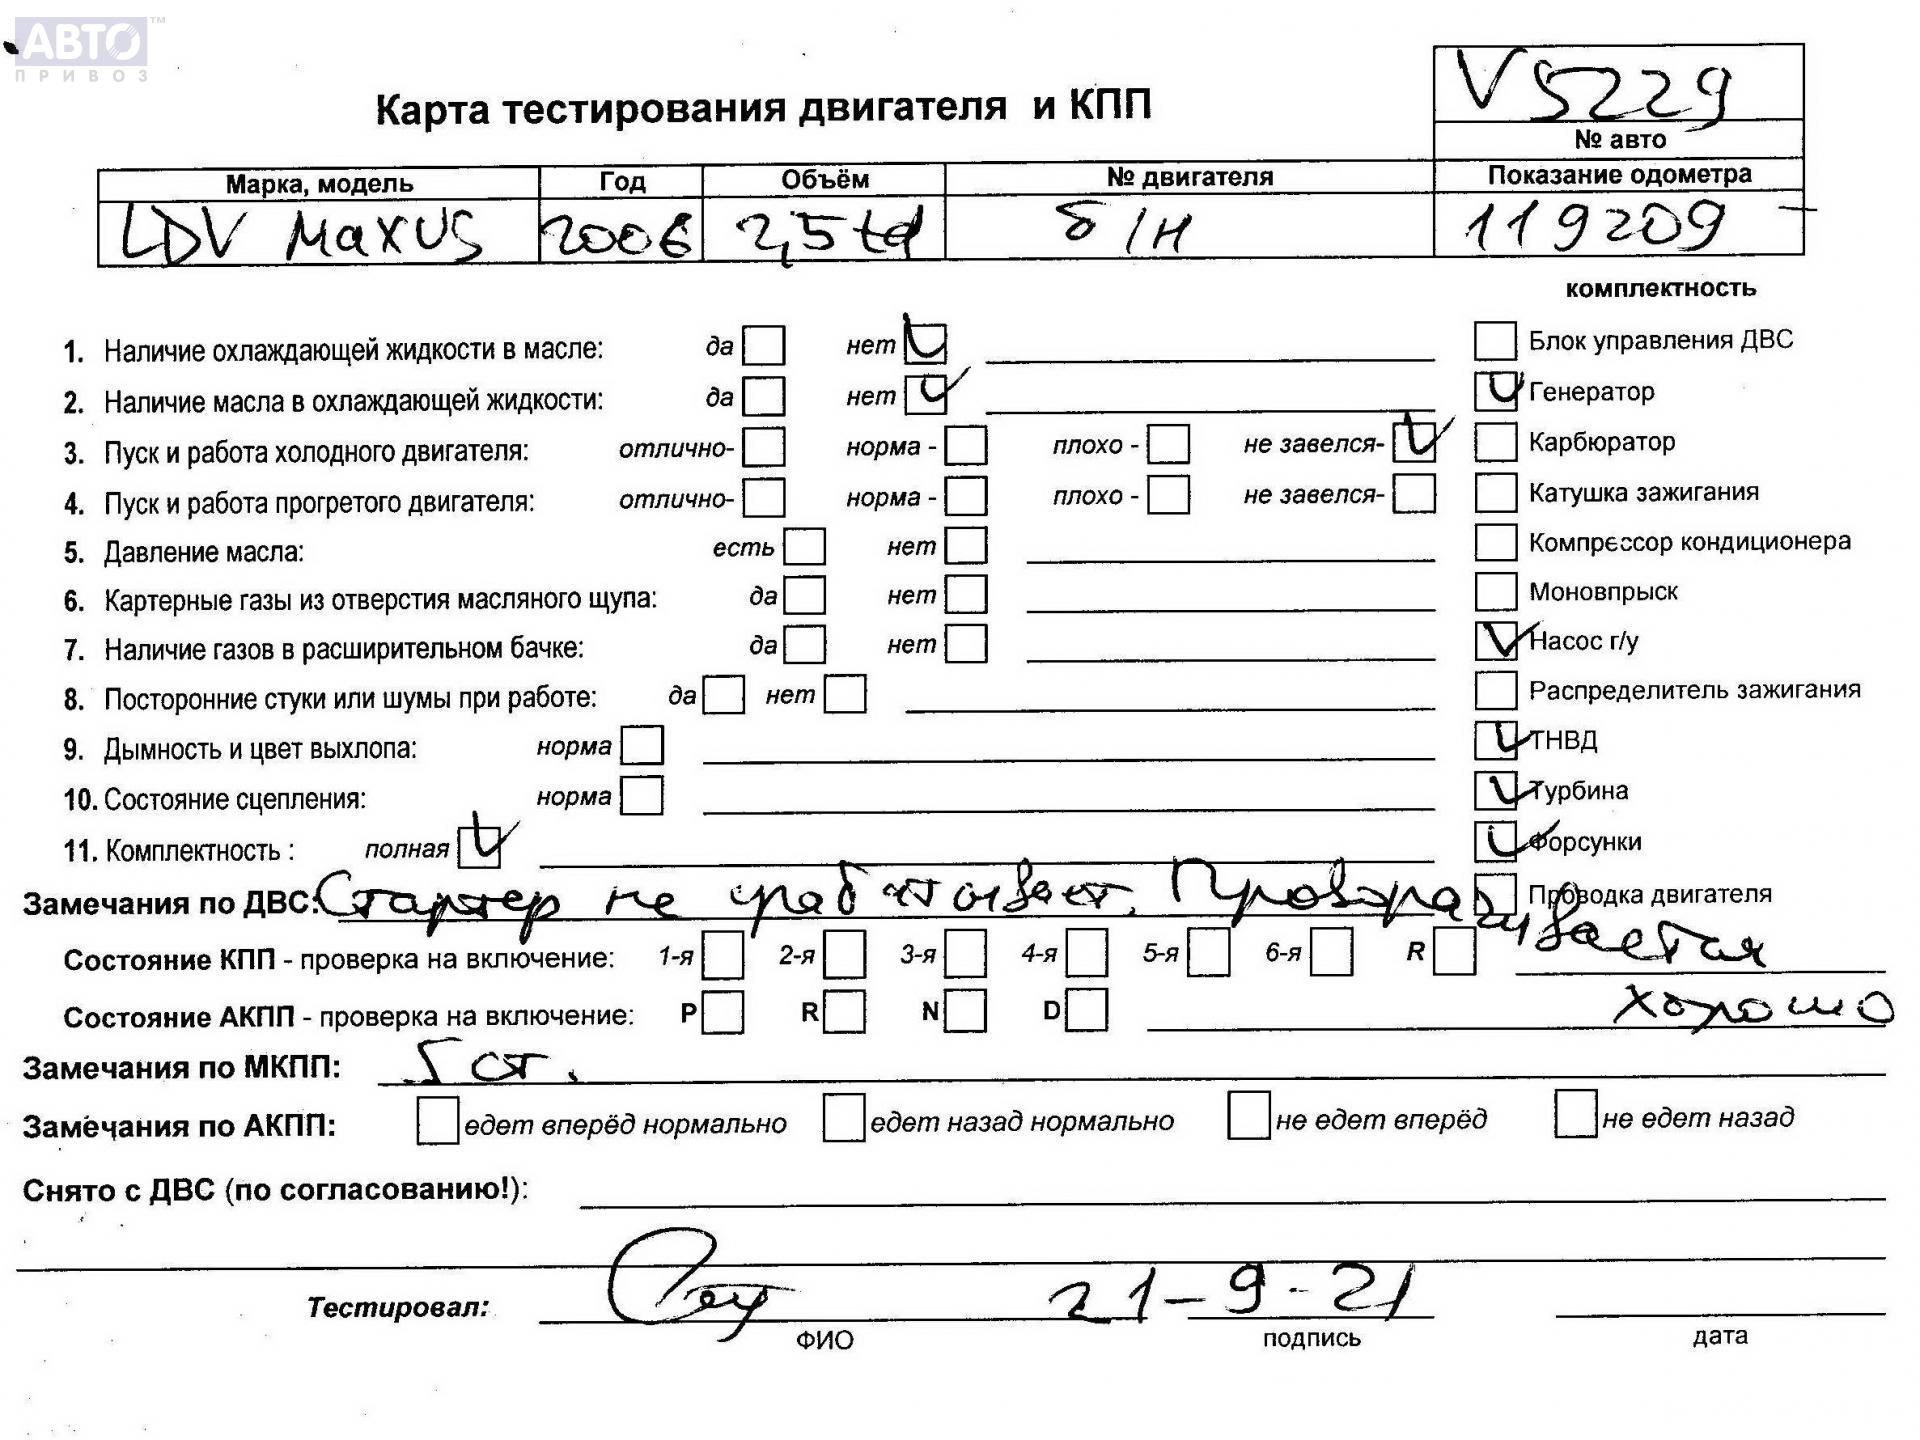 АВТО™
ПРИВОЗ
V5229
Карта тестирования двигателя и КПП
№ авто
Марка, модель Год Объём № двигателя Показание одометра
LDV MAXUS 2006 2,5td б/н 119209
комплектность
1. Наличие охлаждающей жидкости в масле: да нет Блок управления ДВС
2. Наличие масла в охлаждающей жидкости: да нет Генератор
3. Пуск и работа холодного двигателя: отлично- норма - плохо - не завелся- Карбюратор
4. Пуск и работа прогретого двигателя: отлично- норма - плохо - не завелся- Катушка зажигания
5. Давление масла: есть нет Компрессор кондиционера
6. Картерные газы из отверстия масляного щупа: да нет Моновпрыск
7. Наличие газов в расширительном бачке: да нет Насос г/у
8. Посторонние стуки или шумы при работе: да нет Распределитель зажигания
9. Дымность и цвет выхлопа: норма ТНВД
10. Состояние сцепления: норма Турбина
11. Комплектность : полная Форсунки
Замечания по ДВС: Стартер не срабатывает. Проворачивается Проводка двигателя
Состояние КПП - проверка на включение: 1-я 2-я 3-я 4-я 5-я 6-я R
Состояние АКПП - проверка на включение: P R N D хорошо
Замечания по МКПП: 5 ст.
Замечания по АКПП: едет вперёд нормально едет назад нормально не едет вперёд не едет назад
Снято с ДВС (по согласованию!):
Тестировал: 21-9-21
ФИО подпись дата